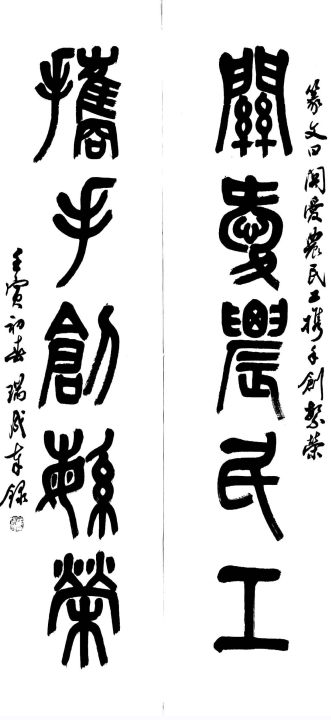 篆文曰關愛農民工攜手創繁榮
關愛農民工
攜手創繁榮
壬寅初春瑞成奉錄